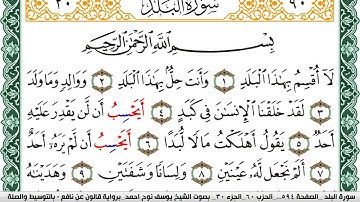 ٣٠ سُورَةُ البَلَدِ ٩٠
بِسْمِ اللَّهِ الرَّحْمَٰنِ الرَّحِيمِ
لَا أُقْسِمُ بِهَٰذَا الْبَلَدِ ١ وَأَنتَ حِلٌّ بِهَٰذَا الْبَلَدِ ٢ وَوَالِدٍ وَمَا وَلَدَ
٣ لَقَدْ خَلَقْنَا الْإِنسَٰنَ فِي كَبَدٍ ٤ أَيَحْسِبُ أَن لَّن يَقْدِرَ عَلَيْهِ
أَحَدٌ ٥ يَقُولُ أَهْلَكْتُ مَالًا لُّبَدًا ٦ أَيَحْسِبُ أَن لَّمْ يَرَهُ أَحَدٌ
٧ أَلَمْ نَجْعَل لَّهُ عَيْنَيْنِ ٨ وَلِسَانًا وَشَفَتَيْنِ ٩ وَهَدَيْنَٰهُ
سورة البلد _ الصفحة ٥٩٤_ الحزب ٦٠_ الجزء ٣٠_ بصوت الشيخ يوسف نوح احمد_ برواية قالون عن نافع - بالتوسيط والصلة